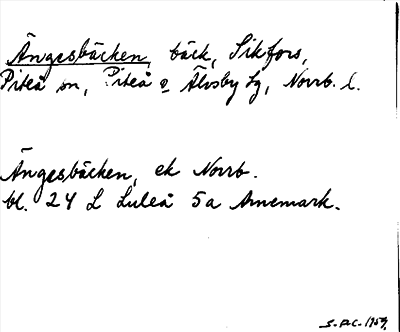 Ängesbäcken, bäck, Sikfors,
Piteå sn, Piteå o Älvsby tg, Norrb. l.
Ängesbäcken, ek Norrb.
bl. 24 L Luleå 5a Arnemark.
S.Å.C. 1959.